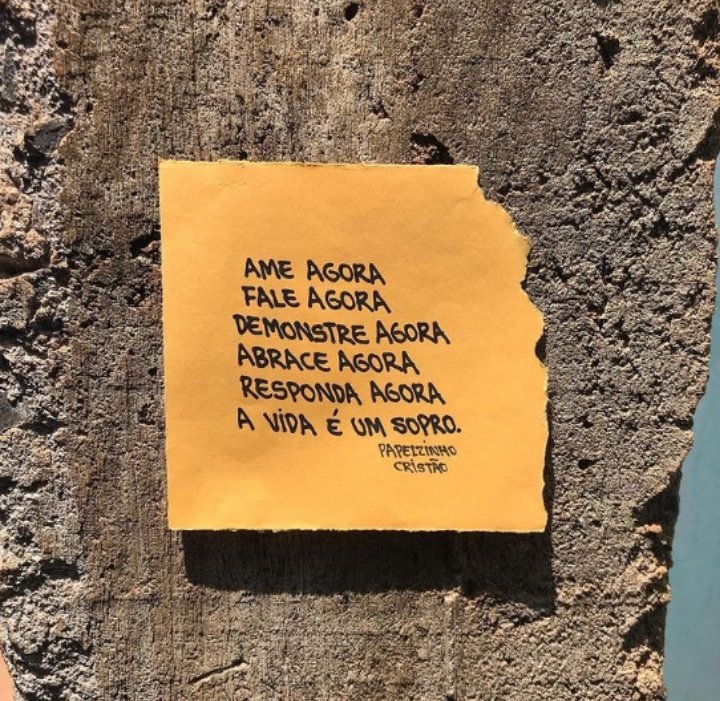 AME AGORA
FALE AGORA
DEMONSTRE AGORA
ABRACE AGORA
RESPONDA AGORA
A VIDA É UM SOPRO.
PAPELZINHO
CRISTÃO